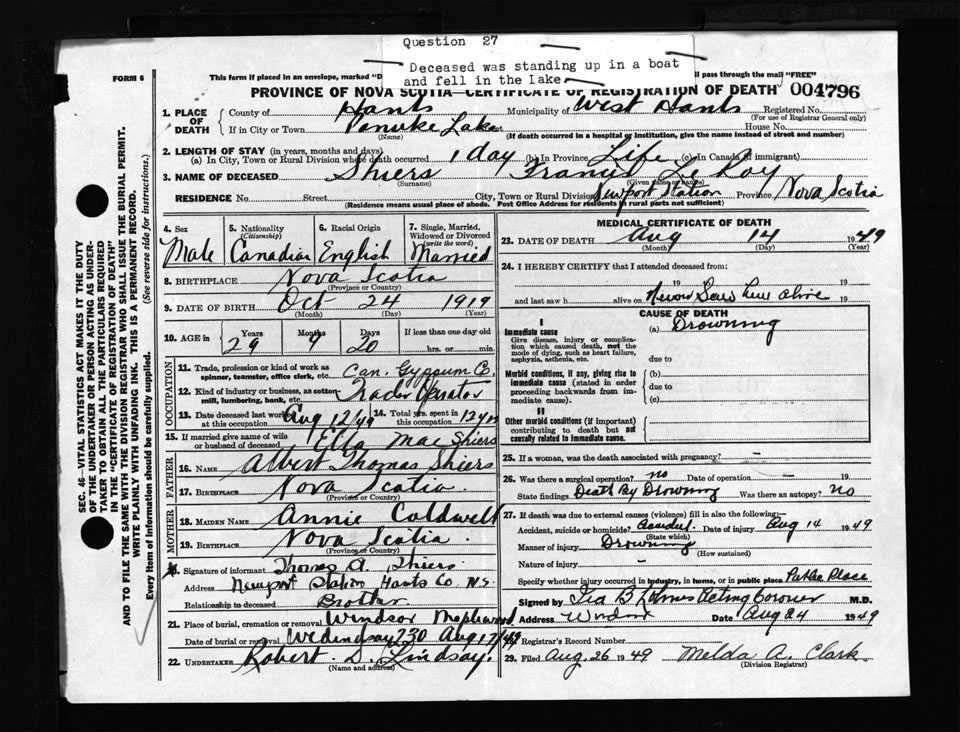 Question 27
Deceased was standing up in a boat
and fell in the lake.
FORM 6
This form if placed in an envelope, marked "D
ll pass through the mail "FREE"
PROVINCE OF NOVA SCOTIA—CERTIFICATE OF REGISTRATION OF DEATH
004796
1. PLACE OF DEATH
County of Hants Municipality of West Hants Registered No.
(For use of Registrar General only)
If in City or Town Panuke Lake House No.
(Name) (If death occurred in a hospital or institution, give the name instead of street and number)
2. LENGTH OF STAY (in years, months and days)
(a) In City, Town or Rural Division where death occurred 1 day (b) In Province Life (c) In Canada (if immigrant)
3. NAME OF DECEASED Shiers Francis Le Roy
(Surname) (Given name or names)
RESIDENCE No. Street City, Town or Rural Division Newport Station Province Nova Scotia
(Residence means usual place of abode. Post Office Address for residents in rural parts not sufficient)
4. Sex Male
5. Nationality (Citizenship) Canadian
6. Racial Origin English
7. Single, Married, Widowed or Divorced (write the word) Married
8. BIRTHPLACE Nova Scotia
(Province or Country)
9. DATE OF BIRTH Oct 24 1919
(Month) (Day) (Year)
10. AGE in Years Months Days If less than one day old
29 9 20 hrs. or min.
OCCUPATION
11. Trade, profession or kind of work as spinner, teamster, office clerk, etc. Can. Gypsum Co.
12. Kind of industry or business, as cotton-mill, lumbering, bank, etc. Trador Operator
13. Date deceased last worked at this occupation Aug 12/49
14. Total yrs. spent in this occupation 12 yrs
15. If married give name of wife or husband of deceased Ella Mae Shiers
FATHER
16. NAME Albert Thomas Shiers
17. BIRTHPLACE Nova Scotia
(Province or Country)
MOTHER
18. MAIDEN NAME Annie Coldwell
19. BIRTHPLACE Nova Scotia
(Province or Country)
Signature of informant Thomas A. Shiers
Address Newport Station Hants Co N.S.
Relationship to deceased Brother
21. Place of burial, cremation or removal Windsor Maplewood
Date of burial or removal Wedindsay 2 30 Aug 17/49
22. UNDERTAKER Robert D. Lindsay.
(Name and address)
MEDICAL CERTIFICATE OF DEATH
23. DATE OF DEATH Aug 14 1949
(Month) (Day) (Year)
24. I HEREBY CERTIFY that I attended deceased from:
19 19
and last saw h alive on Never Saw him alive 19
CAUSE OF DEATH
I
Immediate cause
Give disease, injury or complication which caused death, not the mode of dying, such as heart failure, asphyxia, asthenia, etc.
(a) Drowning
due to
Morbid conditions, if any, giving rise to immediate cause (stated in order proceeding backwards from immediate cause).
(b)
due to
(c)
II
Other morbid conditions (if important) contributing to death but not causally related to immediate cause.
25. If a woman, was the death associated with pregnancy? –
26. Was there a surgical operation? no Date of operation - 19
State findings Death By Drowning Was there an autopsy? No
27. If death was due to external causes (violence) fill in also the following:—
Accident, suicide or homicide? Accident. Date of injury Aug 14 1949
(State which)
Manner of injury Drowning
(How sustained)
Nature of injury –
Specify whether injury occurred in industry, in home, or in public place Public Place
Signed by Acting Coroner M.D.
Address Windsor Date Aug 24 1949
Registrar's Record Number
29. Filed Aug. 26 1949 Melda A. Clark
(Division Registrar)
SEC. 46—VITAL STATISTICS ACT MAKES IT THE DUTY
OF THE UNDERTAKER OR PERSON ACTING AS UNDER-
TAKER TO OBTAIN ALL THE PARTICULARS REQUIRED
IN THE "CERTIFICATE OF REGISTRATION OF DEATH"
AND TO FILE THE SAME WITH THE DIVISION REGISTRAR WHO SHALL ISSUE THE BURIAL PERMIT.
WRITE PLAINLY WITH UNFADING INK. THIS IS A PERMANENT RECORD.
Every item of information should be carefully supplied. (See reverse side for instructions.)